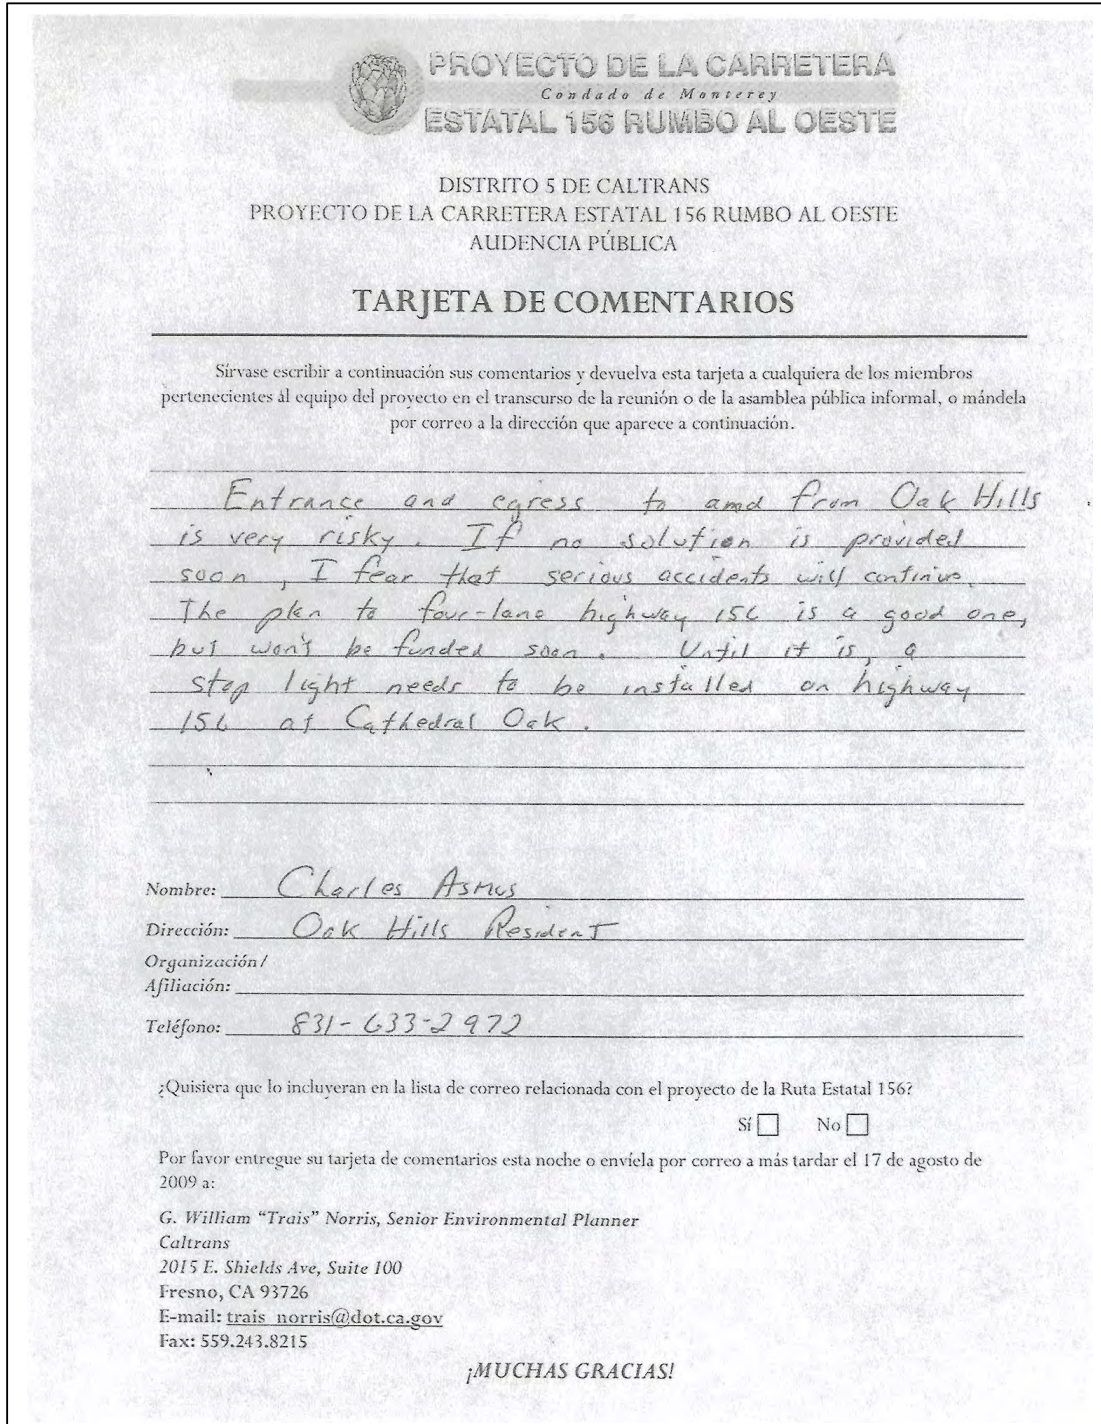 PROYECTO DE LA CARRETERA
Condado de Monterey
ESTATAL 156 RUMBO AL OESTE
DISTRITO 5 DE CALTRANS
PROYECTO DE LA CARRETERA ESTATAL 156 RUMBO AL OESTE
AUDENCIA PÚBLICA
TARJETA DE COMENTARIOS
Sírvase escribir a continuación sus comentarios y devuelva esta tarjeta a cualquiera de los miembros
pertenecientes al equipo del proyecto en el transcurso de la reunión o de la asamblea pública informal, o mándela
por correo a la dirección que aparece a continuación.
Entrance and egress to amd from Oak Hills
is very risky. If no solution is provided
soon, I fear that serious accidents will continue.
The plan to four-lane highway 156 is a good one,
but won't be funded soon. Until it is, a
stop light needs to be installed on highway
156 at Cathedral Oak.
Nombre: Charles Asmus
Dirección: Oak Hills Resident
Organización/
Afiliación:
Teléfono: 831-633-2972
¿Quisiera que lo incluyeran en la lista de correo relacionada con el proyecto de la Ruta Estatal 156?
Sí No
Por favor entregue su tarjeta de comentarios esta noche o envíela por correo a más tardar el 17 de agosto de
2009 a:
G. William “Trais” Norris, Senior Environmental Planner
Caltrans
2015 E. Shields Ave, Suite 100
Fresno, CA 93726
E-mail: trais_norris@dot.ca.gov
Fax: 559.243.8215
¡MUCHAS GRACIAS!